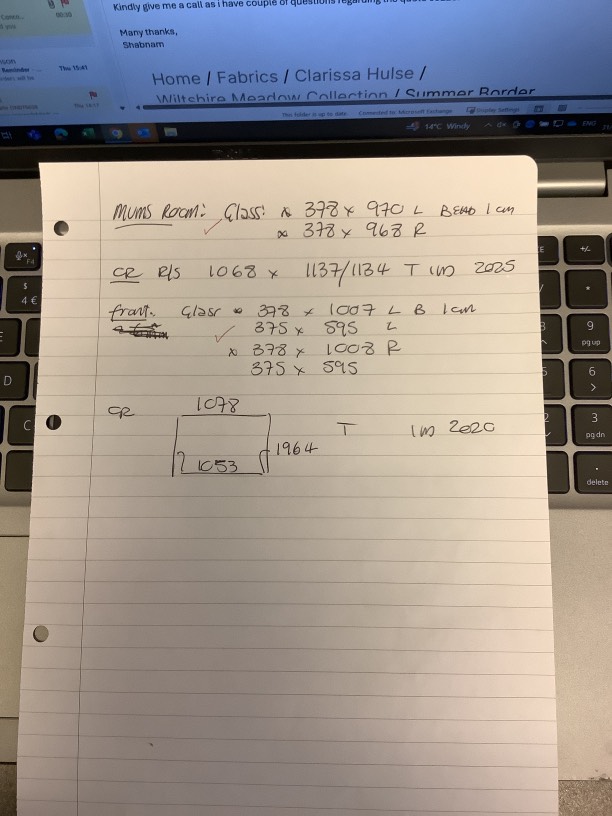 Kindly give me a call as i have couple of questions regarding the quote
Many thanks,
Shabnam
Home / Fabrics / Clarissa Hulse /
Wiltshire Meadow Collection / Summer Border
Reminder
Thu 15:41
00:30
This folder is up to date Connected to: Microsoft Exchange Display Settings
14°C Windy ENG
MUMS ROOM: Glass: x 378 x 970 L BEAD 1cm
x 378 x 968 R
CR R/S 1068 x 1137/1134 T IW 2025
front. Glass x 378 x 1007 L B 1cm
375 x 595 L
x 378 x 1008 R
375 x 595
CR 1078
T IW 2020
1964
1053
F4
$
4 €
D
C
E
+/-
*
9
pg up
6
>
3
pg dn
.
delete